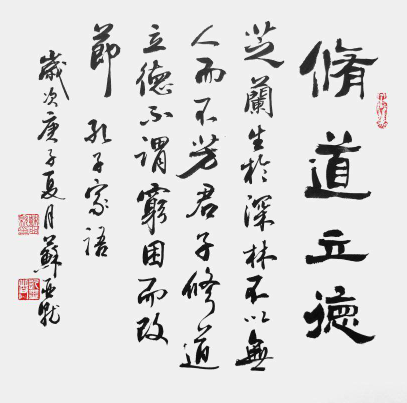 脩道立德
芝蘭生於深林不以無
人而不芳君子修道
立德不謂窮困而改
節 孔子家語
歲次庚子夏月蘇亞